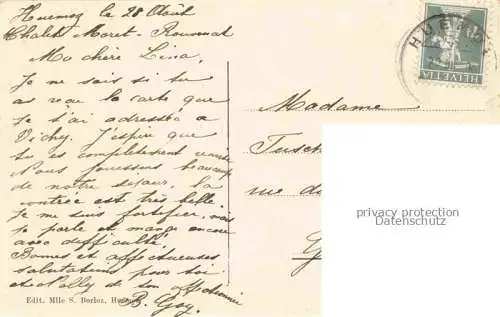 Huemoz le 28 Août
Chalet Moret-Ronnmat
Ma chère Lina,
Je ne sais si tu
as vue la carte que
je t'ai adressée a
Vichy. J'espère que
tu es complètement remise
Nous jouissons beaucoup
de notre séjour, la
contrée est très belle.
Je me suis fortifiée, mais
je parle et mange encore
avec difficulté.
Bonnes et affectueuses
salutations pour toi
et Nelly de son affectionnée
B. Goy.
Edit. Mlle S. Borloz, Huémoz
HUÉMOZ
HELVETIA
Madame
Tusch
rue d
G
privacy protection
Datenschutz